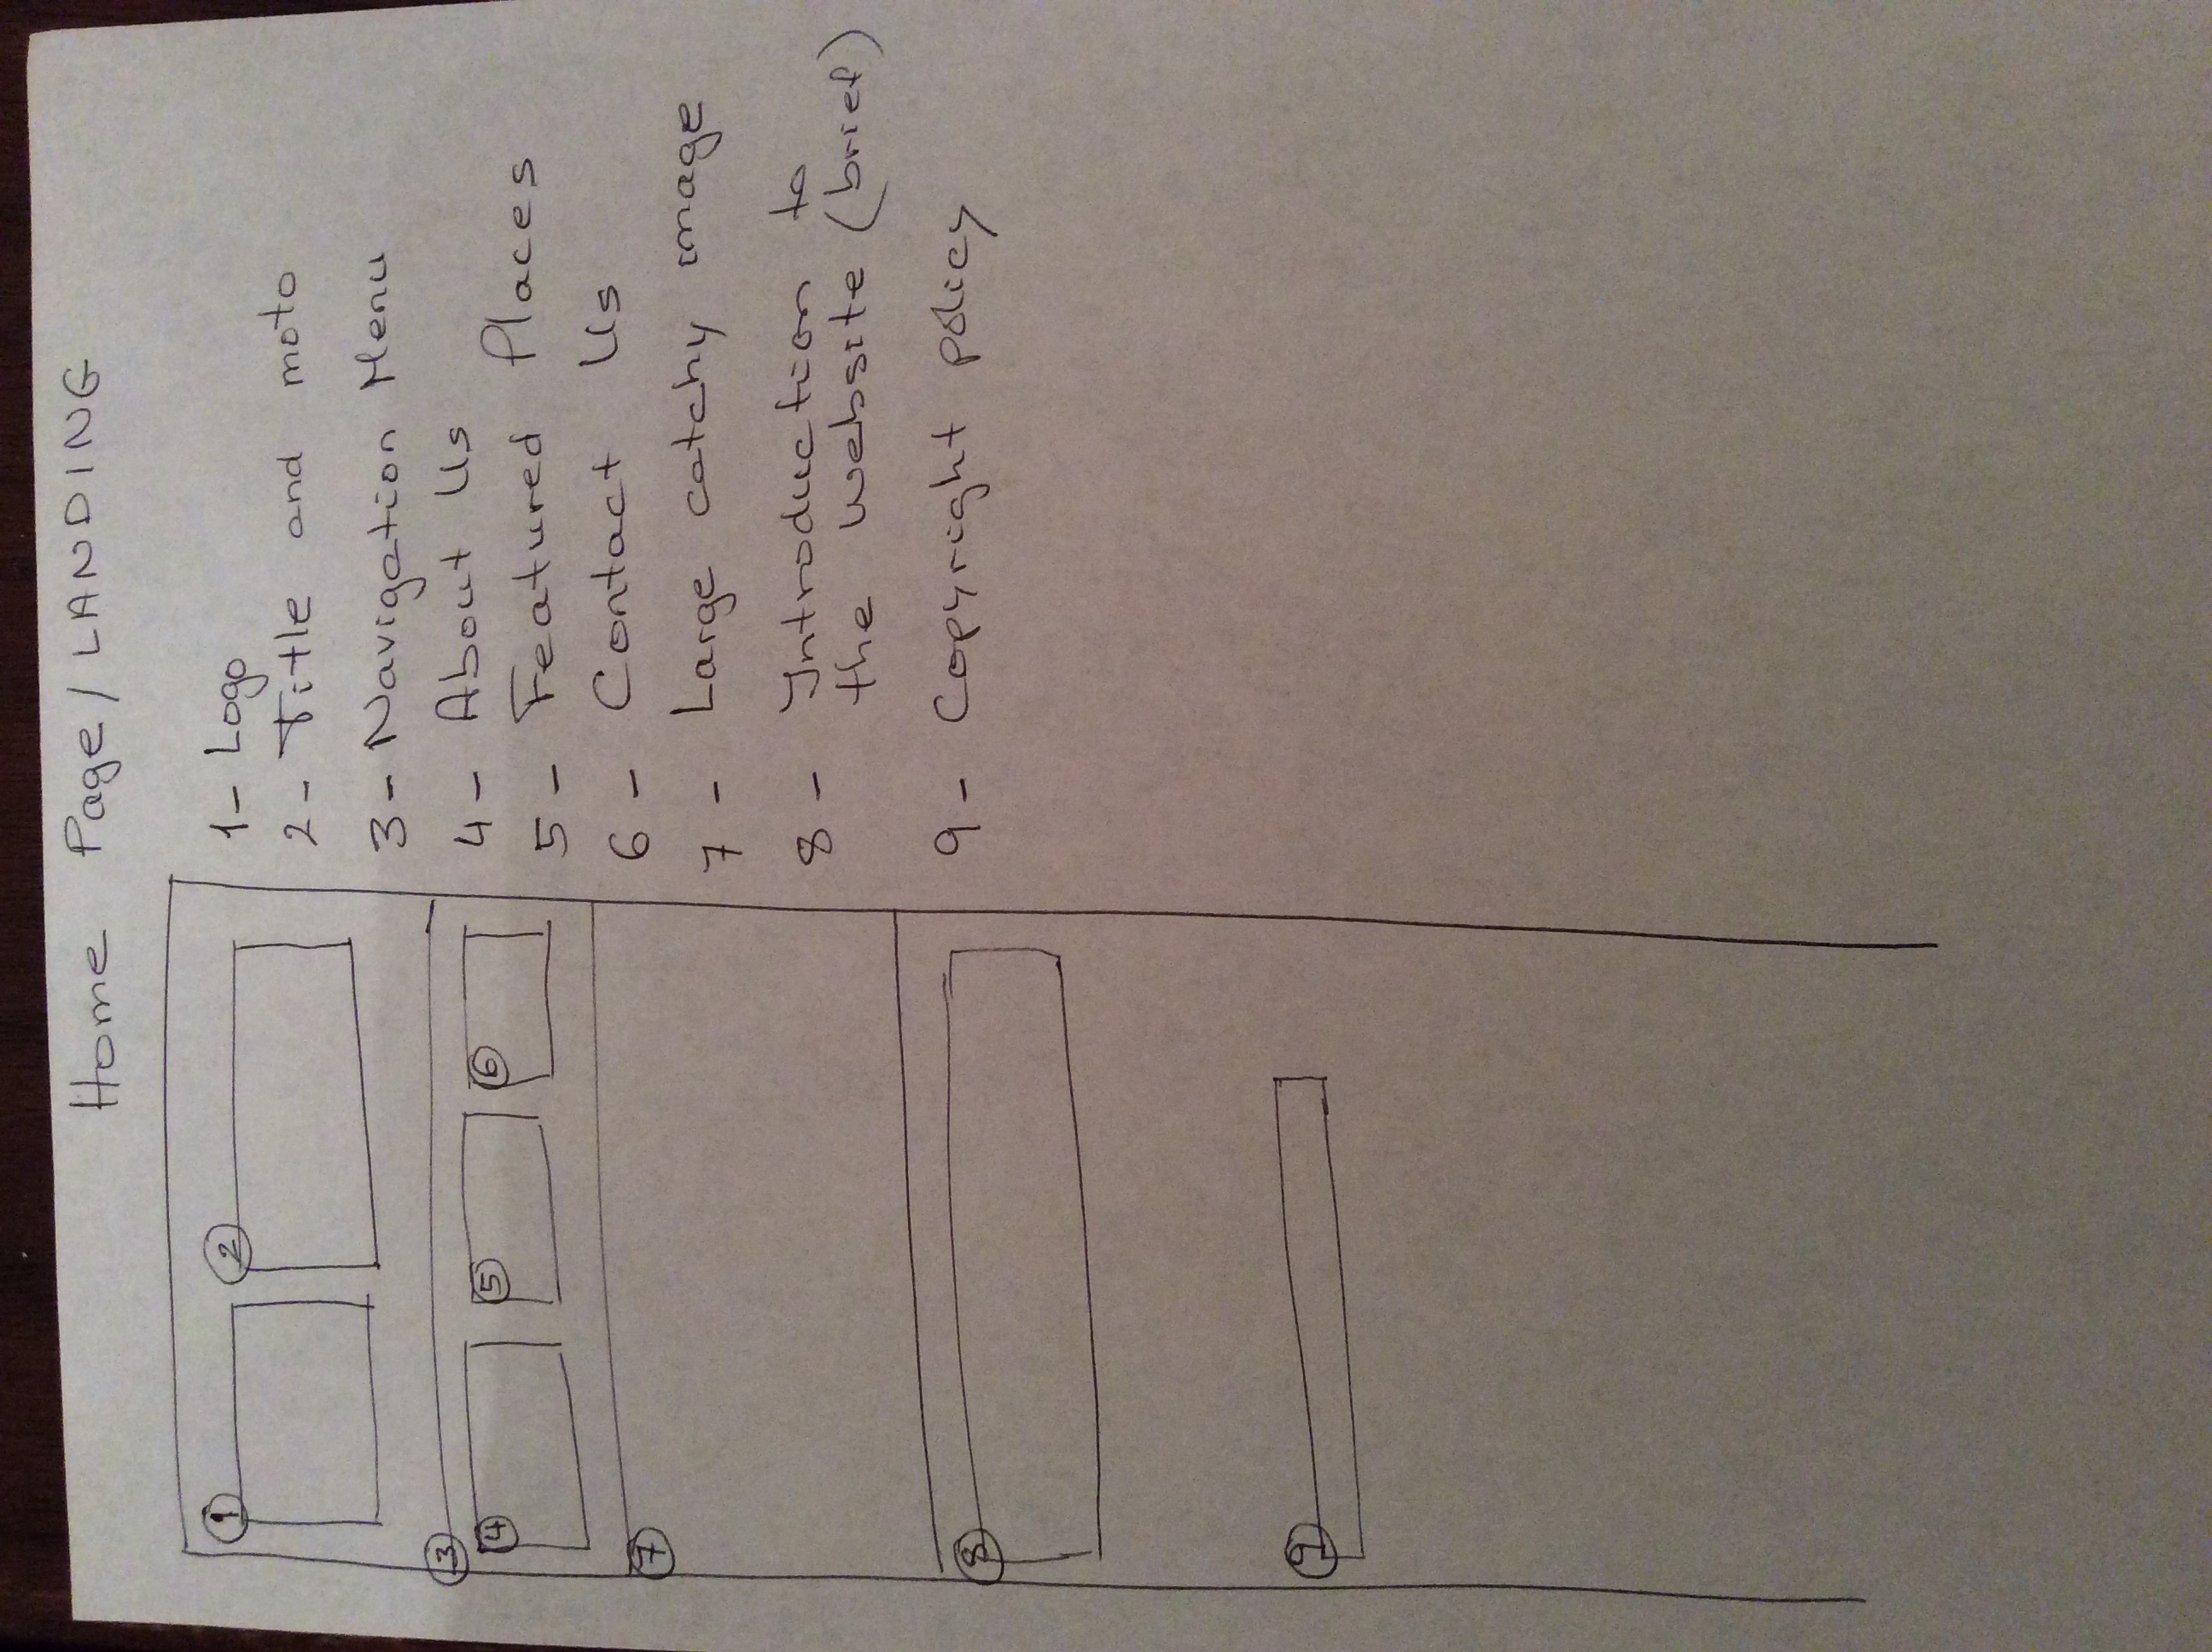 Home Page / LANDING
1
2
3
4
5
6
7
8
9
1- Logo
2- Title and moto
3- Navigation Menu
4- About Us
5- Featured Places
6- Contact Us
7- Large catchy image
8- Introduction to
the website (brief)
9- Copyright policy